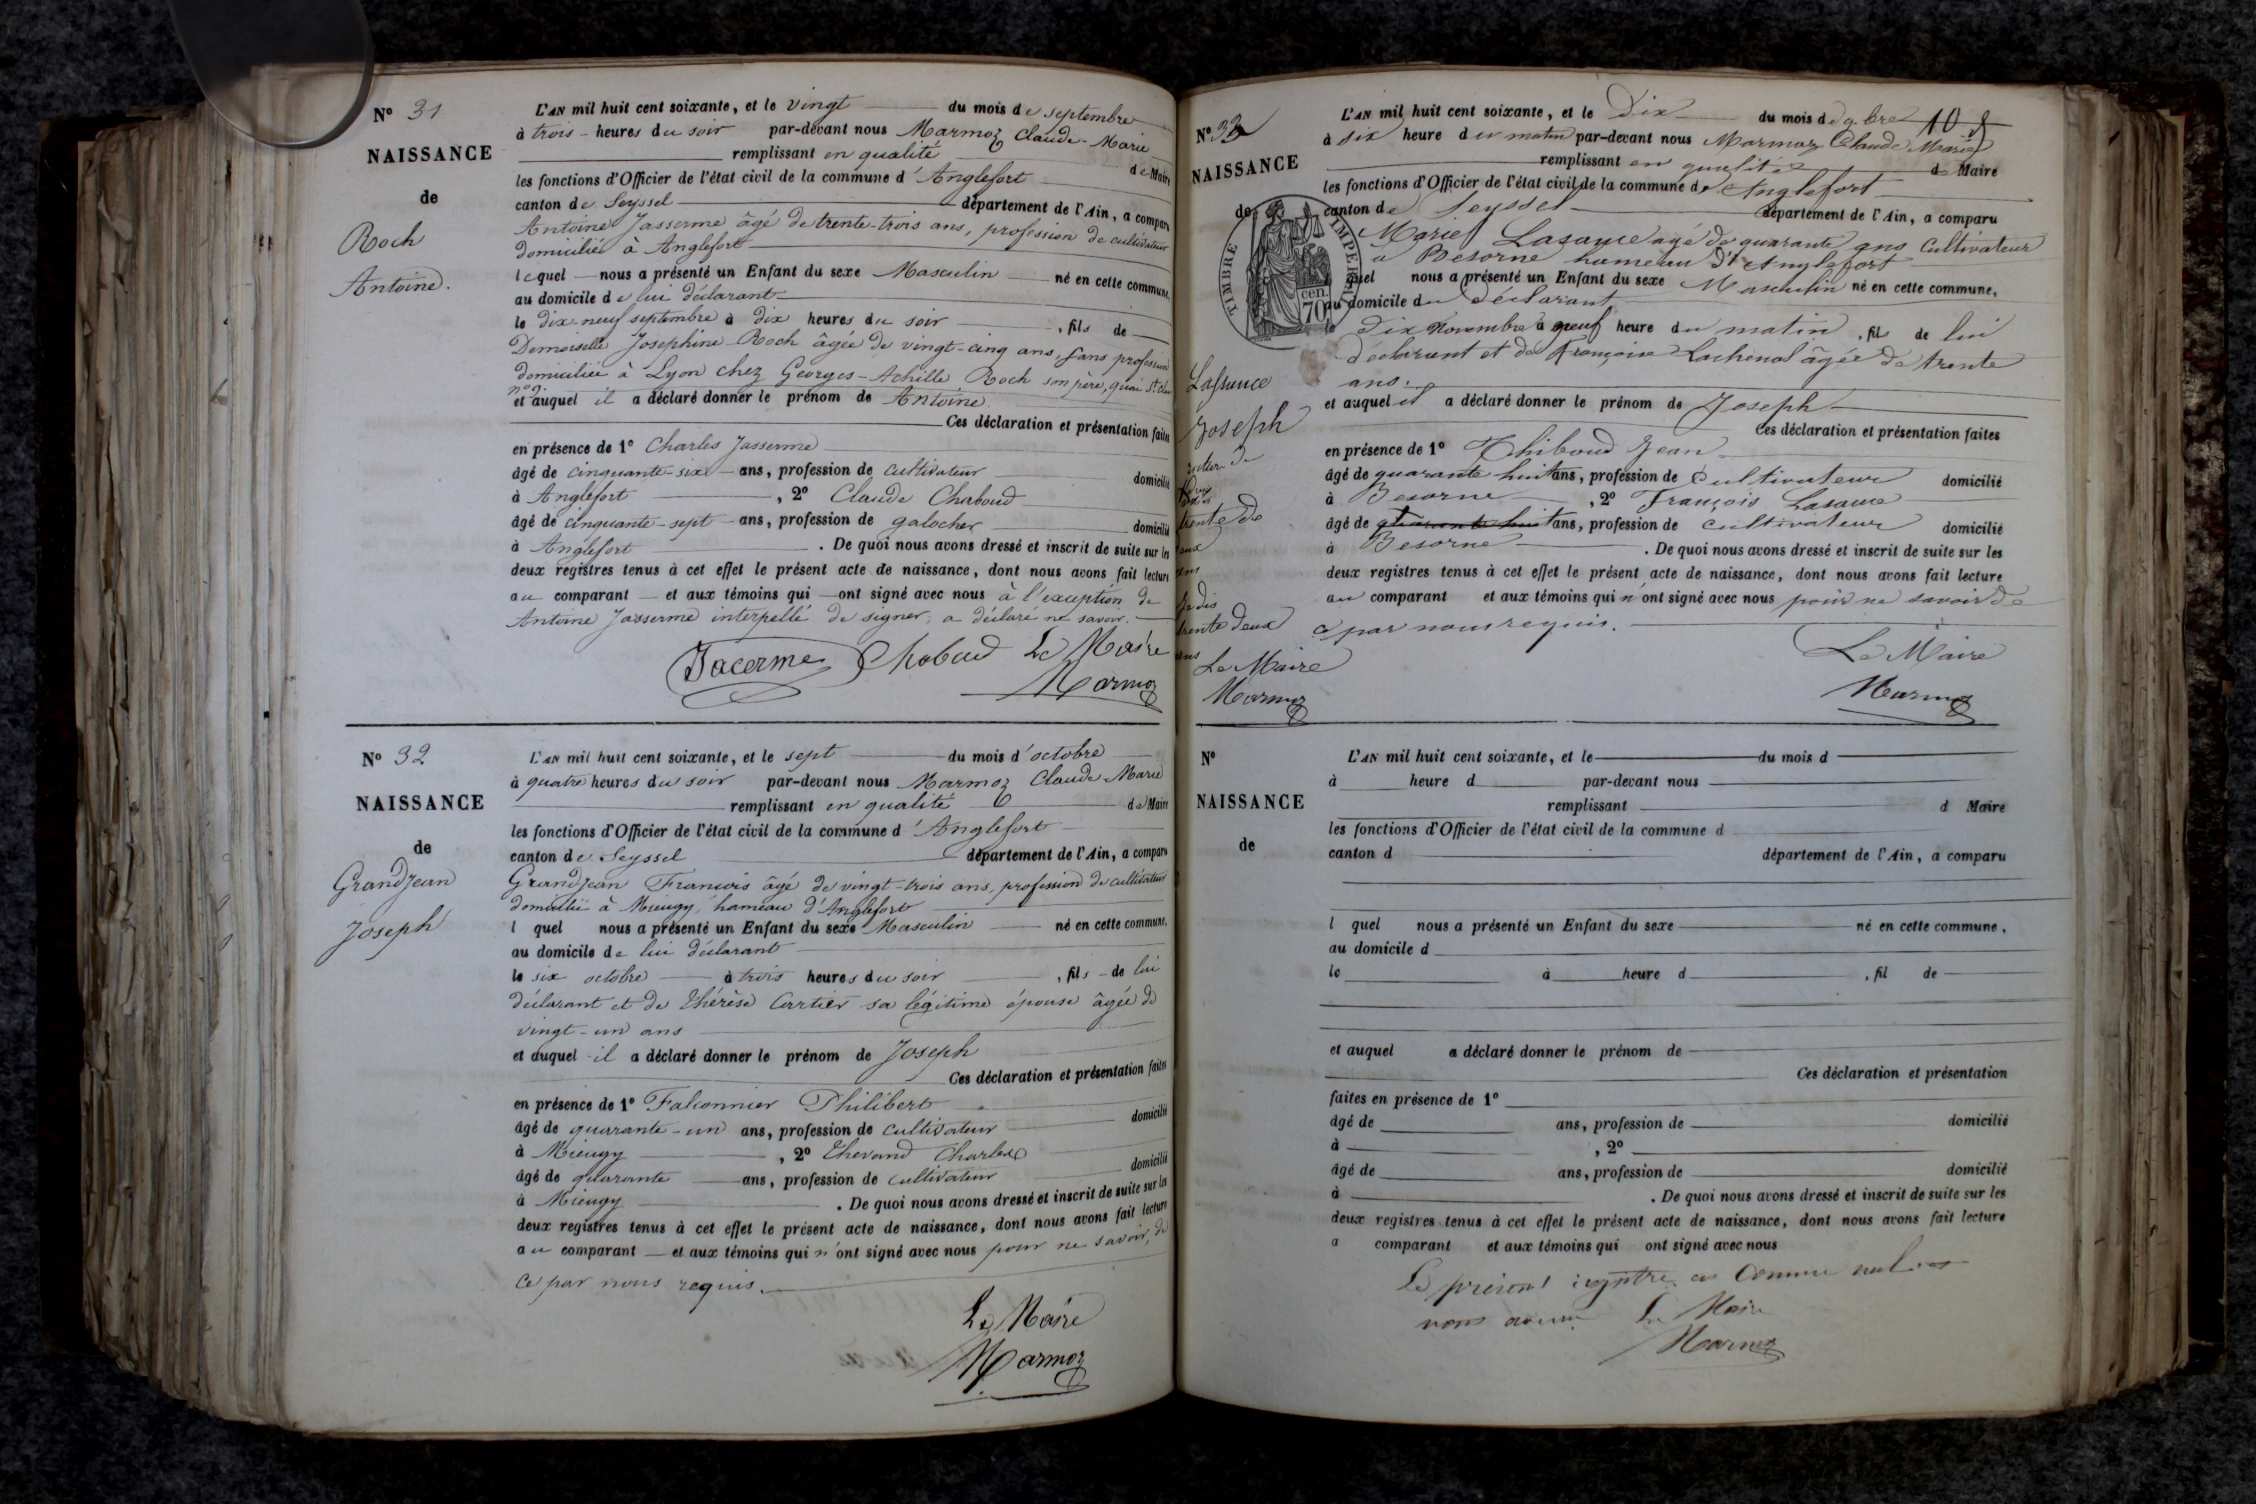 N° 31
NAISSANCE
de
Roch
Antoine.
L'AN mil huit cent soixante, et le vingt du mois de septembre
à trois heures du soir par-devant nous Marmoz Claude-Marie
remplissant en qualité de Maire
les fonctions d'Officier de l'état civil de la commune d'Anglefort
canton de Seyssel département de l'Ain, a comparu
Antoine Jasserme âgé de trente-trois ans, profession de cultivateur
domicilié à Anglefort
lequel nous a présenté un Enfant du sexe Masculin né en cette commune,
au domicile de lui déclarant
le dix-neuf septembre à dix heures du soir, fils de
Demoiselle Joséphine Roch âgée de vingt-cinq ans, sans profession
domiciliée à Lyon chez Georges-Achille Roch son père, quai St
n° 9.
et auquel il a déclaré donner le prénom de Antoine
Ces déclaration et présentation faites
en présence de 1° Charles Jasserme
âgé de cinquante-six ans, profession de cultivateur domicilié
à Anglefort, 2° Claude Chaboud
âgé de cinquante-sept ans, profession de galocher domicilié
à Anglefort. De quoi nous avons dressé et inscrit de suite sur les
deux registres tenus à cet effet le présent acte de naissance, dont nous avons fait lecture
au comparant et aux témoins qui ont signé avec nous à l'exception de
Antoine Jasserme interpellé de signer, a déclaré ne savoir.
Jacerme Chaboud Le Maire
Marmoz
N° 32
NAISSANCE
de
Grandjean
Joseph
L'AN mil huit cent soixante, et le sept du mois d'octobre
à quatre heures du soir par-devant nous Marmoz Claude-Marie
remplissant en qualité de Maire
les fonctions d'Officier de l'état civil de la commune d'Anglefort
canton de Seyssel département de l'Ain, a comparu
Grandjean François âgé de vingt-trois ans, profession de cultivateur
domicilié à Mieugy, hameau d'Anglefort
l quel nous a présenté un Enfant du sexe Masculin né en cette commune,
au domicile de lui déclarant
le six octobre à trois heures du soir, fils de lui
déclarant et de Thérèse Cartier sa légitime épouse âgée de
vingt-un ans
et auquel il a déclaré donner le prénom de Joseph
Ces déclaration et présentation faites
en présence de 1° Falconnier Philibert
âgé de quarante-un ans, profession de cultivateur domicilié
à Mieugy, 2° Thevand Charles
âgé de quarante ans, profession de cultivateur domicilié
à Mieugy. De quoi nous avons dressé et inscrit de suite sur les
deux registres tenus à cet effet le présent acte de naissance, dont nous avons fait lecture
au comparant et aux témoins qui n'ont signé avec nous pour ne savoir, de
ce par nous requis.
Le Maire
Marmoz
N° 33
NAISSANCE
de
TIMBRE IMPERIAL
70 cen.
Lassauce
Joseph
trente deux
ans
Je dis
trente deux
ans
Le Maire
Marmoz
L'AN mil huit cent soixante, et le Dix du mois de 9bre 10
à six heure du matin par-devant nous Marmoz Claude Marie
remplissant en qualité de Maire
les fonctions d'Officier de l'état civil de la commune d'Anglefort
canton de Seyssel département de l'Ain, a comparu
Marie Lasauce agé de quarante ans Cultivateur
a Besorne hameau d'Anglefort
quel nous a présenté un Enfant du sexe Masculin né en cette commune,
au domicile du déclarant
le dix Novembre à neuf heure du matin, fil de lui
déclarant et de Françoise Lachenal âgée de trente
ans.
et auquel il a déclaré donner le prénom de Joseph
Ces déclaration et présentation faites
en présence de 1° Thiboud Jean
âgé de quarante huit ans, profession de Cultivateur domicilié
à Besorne, 2° François Lasauce
âgé de quarante huit ans, profession de cultivateur domicilié
à Besorne. De quoi nous avons dressé et inscrit de suite sur les
deux registres tenus à cet effet le présent acte de naissance, dont nous avons fait lecture
au comparant et aux témoins qui n'ont signé avec nous pour ne savoir de
ce par nous requis.
Le Maire
Marmoz
N°
NAISSANCE
de
L'AN mil huit cent soixante, et le du mois d
à heure d par-devant nous
remplissant d Maire
les fonctions d'Officier de l'état civil de la commune d
canton d département de l'Ain, a comparu
l quel nous a présenté un Enfant du sexe né en cette commune,
au domicile d
le à heure d, fil de
et auquel a déclaré donner le prénom de
Ces déclaration et présentation
faites en présence de 1°
âgé de ans, profession de domicilié
à, 2°
âgé de ans, profession de domicilié
à. De quoi nous avons dressé et inscrit de suite sur les
deux registres tenus à cet effet le présent acte de naissance, dont nous avons fait lecture
a comparant et aux témoins qui ont signé avec nous
Le présent registre
Le Maire
Marmoz